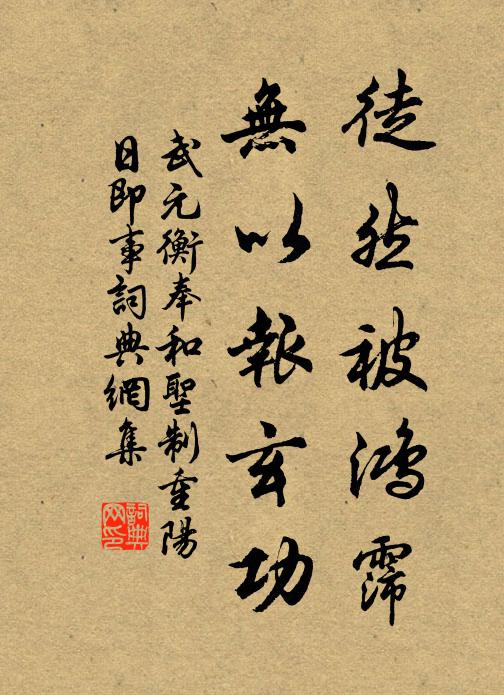 徒然被鴻霈
無以報玄功
武元衡奉和聖制重陽
日即事詞典網集
詞典網印